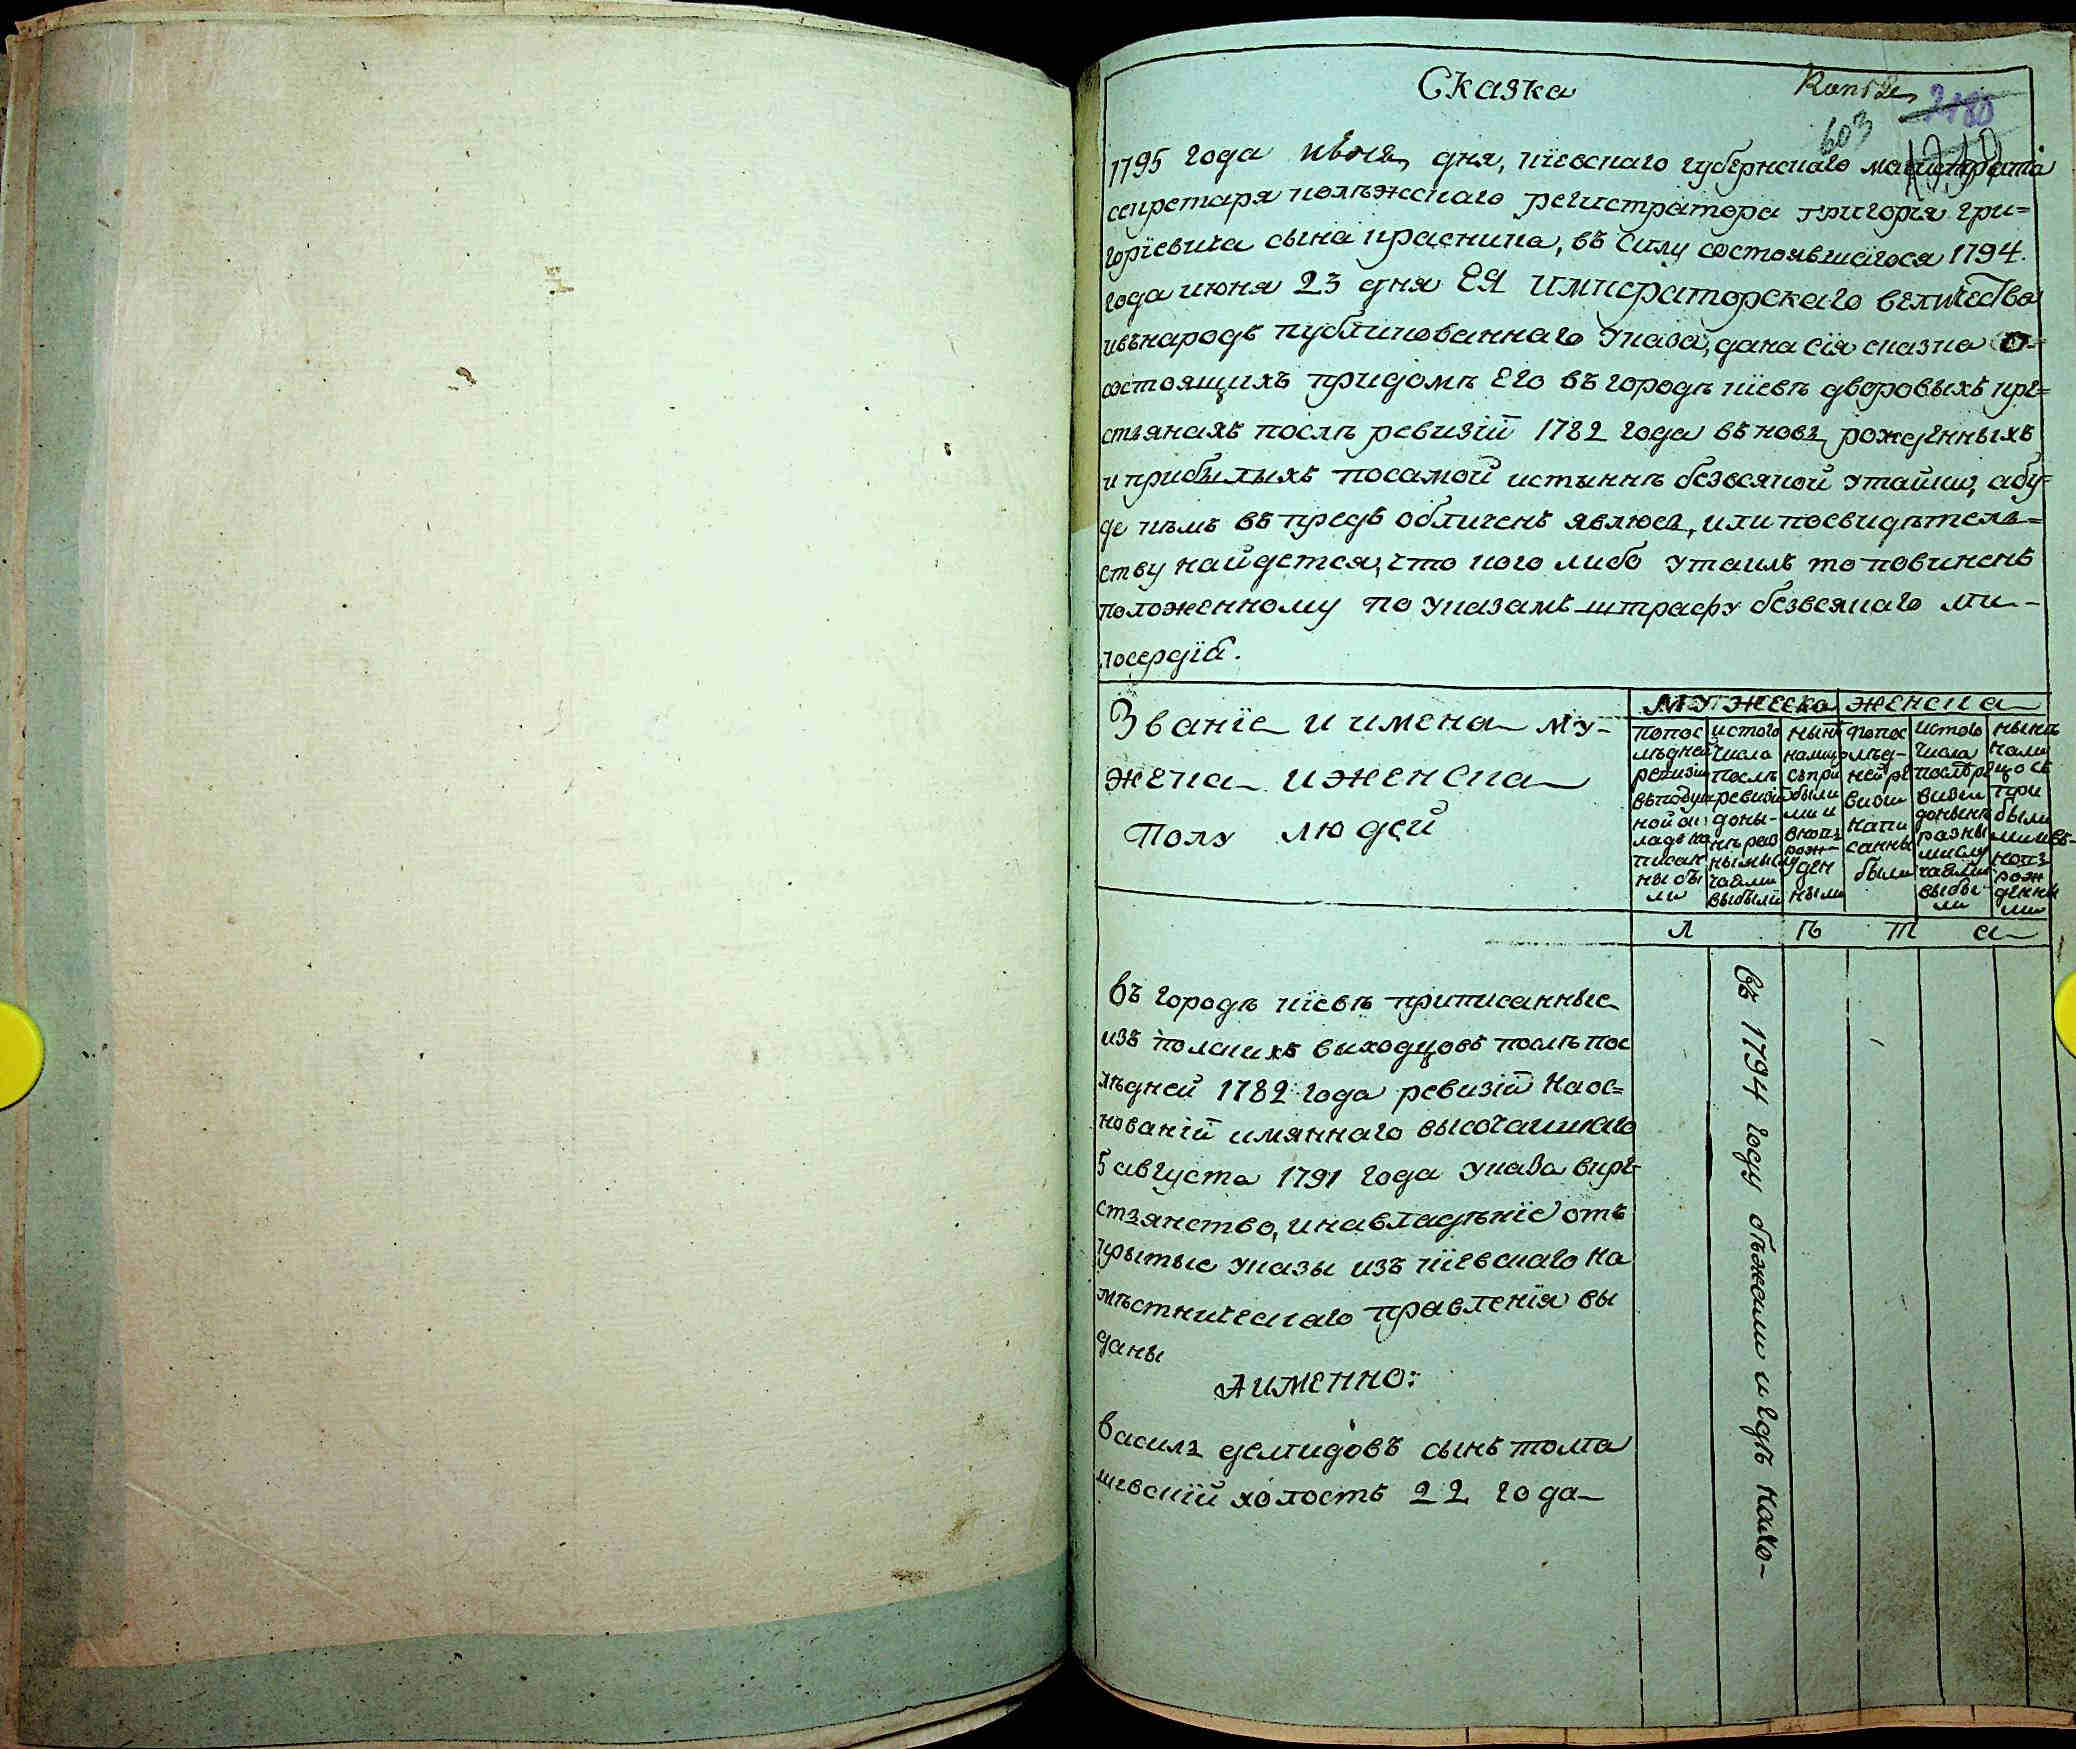 Сказка
Копїя
2180
603
1795 года июня дня, кїевскаго губернскаго магистрата
секретаря колѣжскаго регистратора григорїя гри=
горїевича сына красника, въ силу состоявшагося 1794.
года июня 23 дня ЕЯ императорскаго величества
ивънародъ публикованнаго указа, дана сїя сказка о=
состоящихъ придомѣ его въ городѣ кїевѣ дворовыхъ кре=
стьянахъ послѣ ревизїй 1782 года въновь рожденныхъ
и прибылыхъ посамой истыннѣ безвсякой утайки, абу=
де кѣмъ въпредь обличенъ явлюсь, или посвидѣтель=
ству найдется, что кого либо утаилъ то повиненъ
положенному по указамъ штрафу безвсякаго ми-
лосердїя.
Званїе и имена му-
жека и женска
полу людей
мужеска женска
попос
лѣдней
ревизїи
вьподуш
ной ок
ладъ на
писан
ны бы
ли
истого
числа
послѣ
ревизїи
доны-
нѣ раз
ными слу
чаями
выбыли
нынѣ
налицо
съ при
были
ми и
вновь
рож-
ден
ными
попос
лѣд-
ней ре
визии
напи
санны
были
истого
числа
послѣ ре
визии
донынѣ
разны
мислу
чаями
выбы-
ли
нынѣ
нали
цо съ
при
были
мии въ-
новь
рож
денны
ми
л ѣ т а
въ городѣ кїевѣ приписанные
изъ полскихъ выходцовъ послѣ пос
лѣдней 1782 года ревизїй наос=
нованїй имяннаго высочашшаго
5 августа 1791 года указа вкре-
стьянство, инавладѣнїе отъ
крытые указы изъ кїевскаго на
мѣстническаго правленїя вы
даны
Аименно:
василь демидовъ сынъ толма
чевскїй холостъ 22 года
въ 1794 году бѣжали и гдѣ нахо-